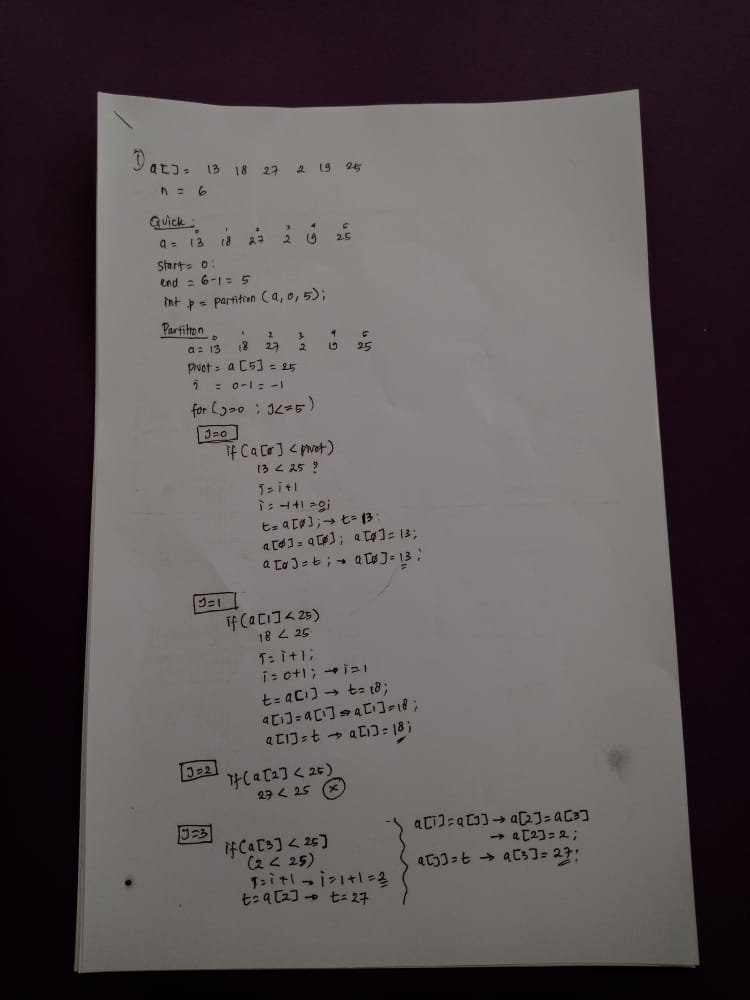 ① a[]= 13 18 27 2 19 25
n = 6
Quick:
0 1 2 3 4 5
a= 13 18 27 2 19 25
Start= 0:
end = 6-1= 5
int p= partition (a, 0, 5);
Partition
0 1 2 3 4 5
a= 13 18 27 2 19 25
Pivot= a[5]= 25
i = 0-1= -1
for(J=0 ; J<=5)
J=0
if(a[0]<pivot)
13 < 25 ?
i= i+1
i= -1+1=0;
t= a[0]; → t= 13:
a[0]= a[0]; a[0]= 13;
a[0]= t; → a[0]= 13;
J=1
if(a[1]<25)
18 < 25
i= i+1;
i= 0+1; → i=1
t= a[1] → t= 18;
a[1]= a[1] ⇒ a[1]=18;
a[1]= t → a[1]= 18;
J=2
if(a[2]<25)
27 < 25 ⓧ
J=3
if(a[3]<25]
(2 < 25)
i= i+1 → i= 1+1=2
t= a[2] → t= 27
a[i]= a[J] → a[2]= a[3]
→ a[2]= 2;
a[J]= t → a[3]= 27;